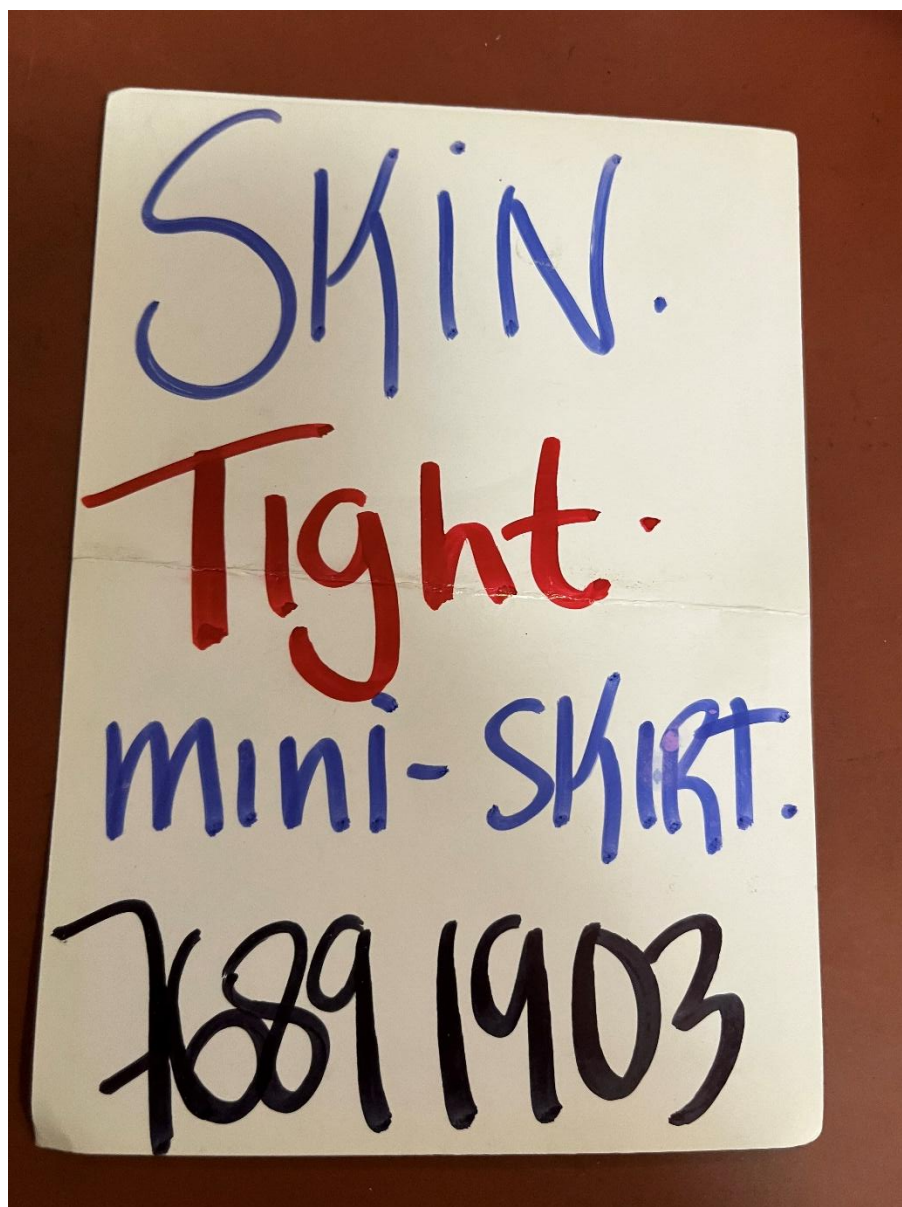 SKiN.
Tight.
mini-SKIRT.
7689 1903